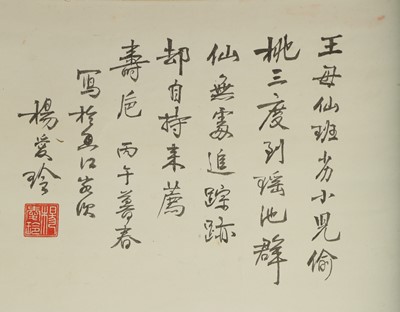 王母仙班劣小兒偷
桃三度到瑤池群
仙無處追踪跡
却自持來薦
壽卮 丙午暮春
寫於江客次
楊愛玲